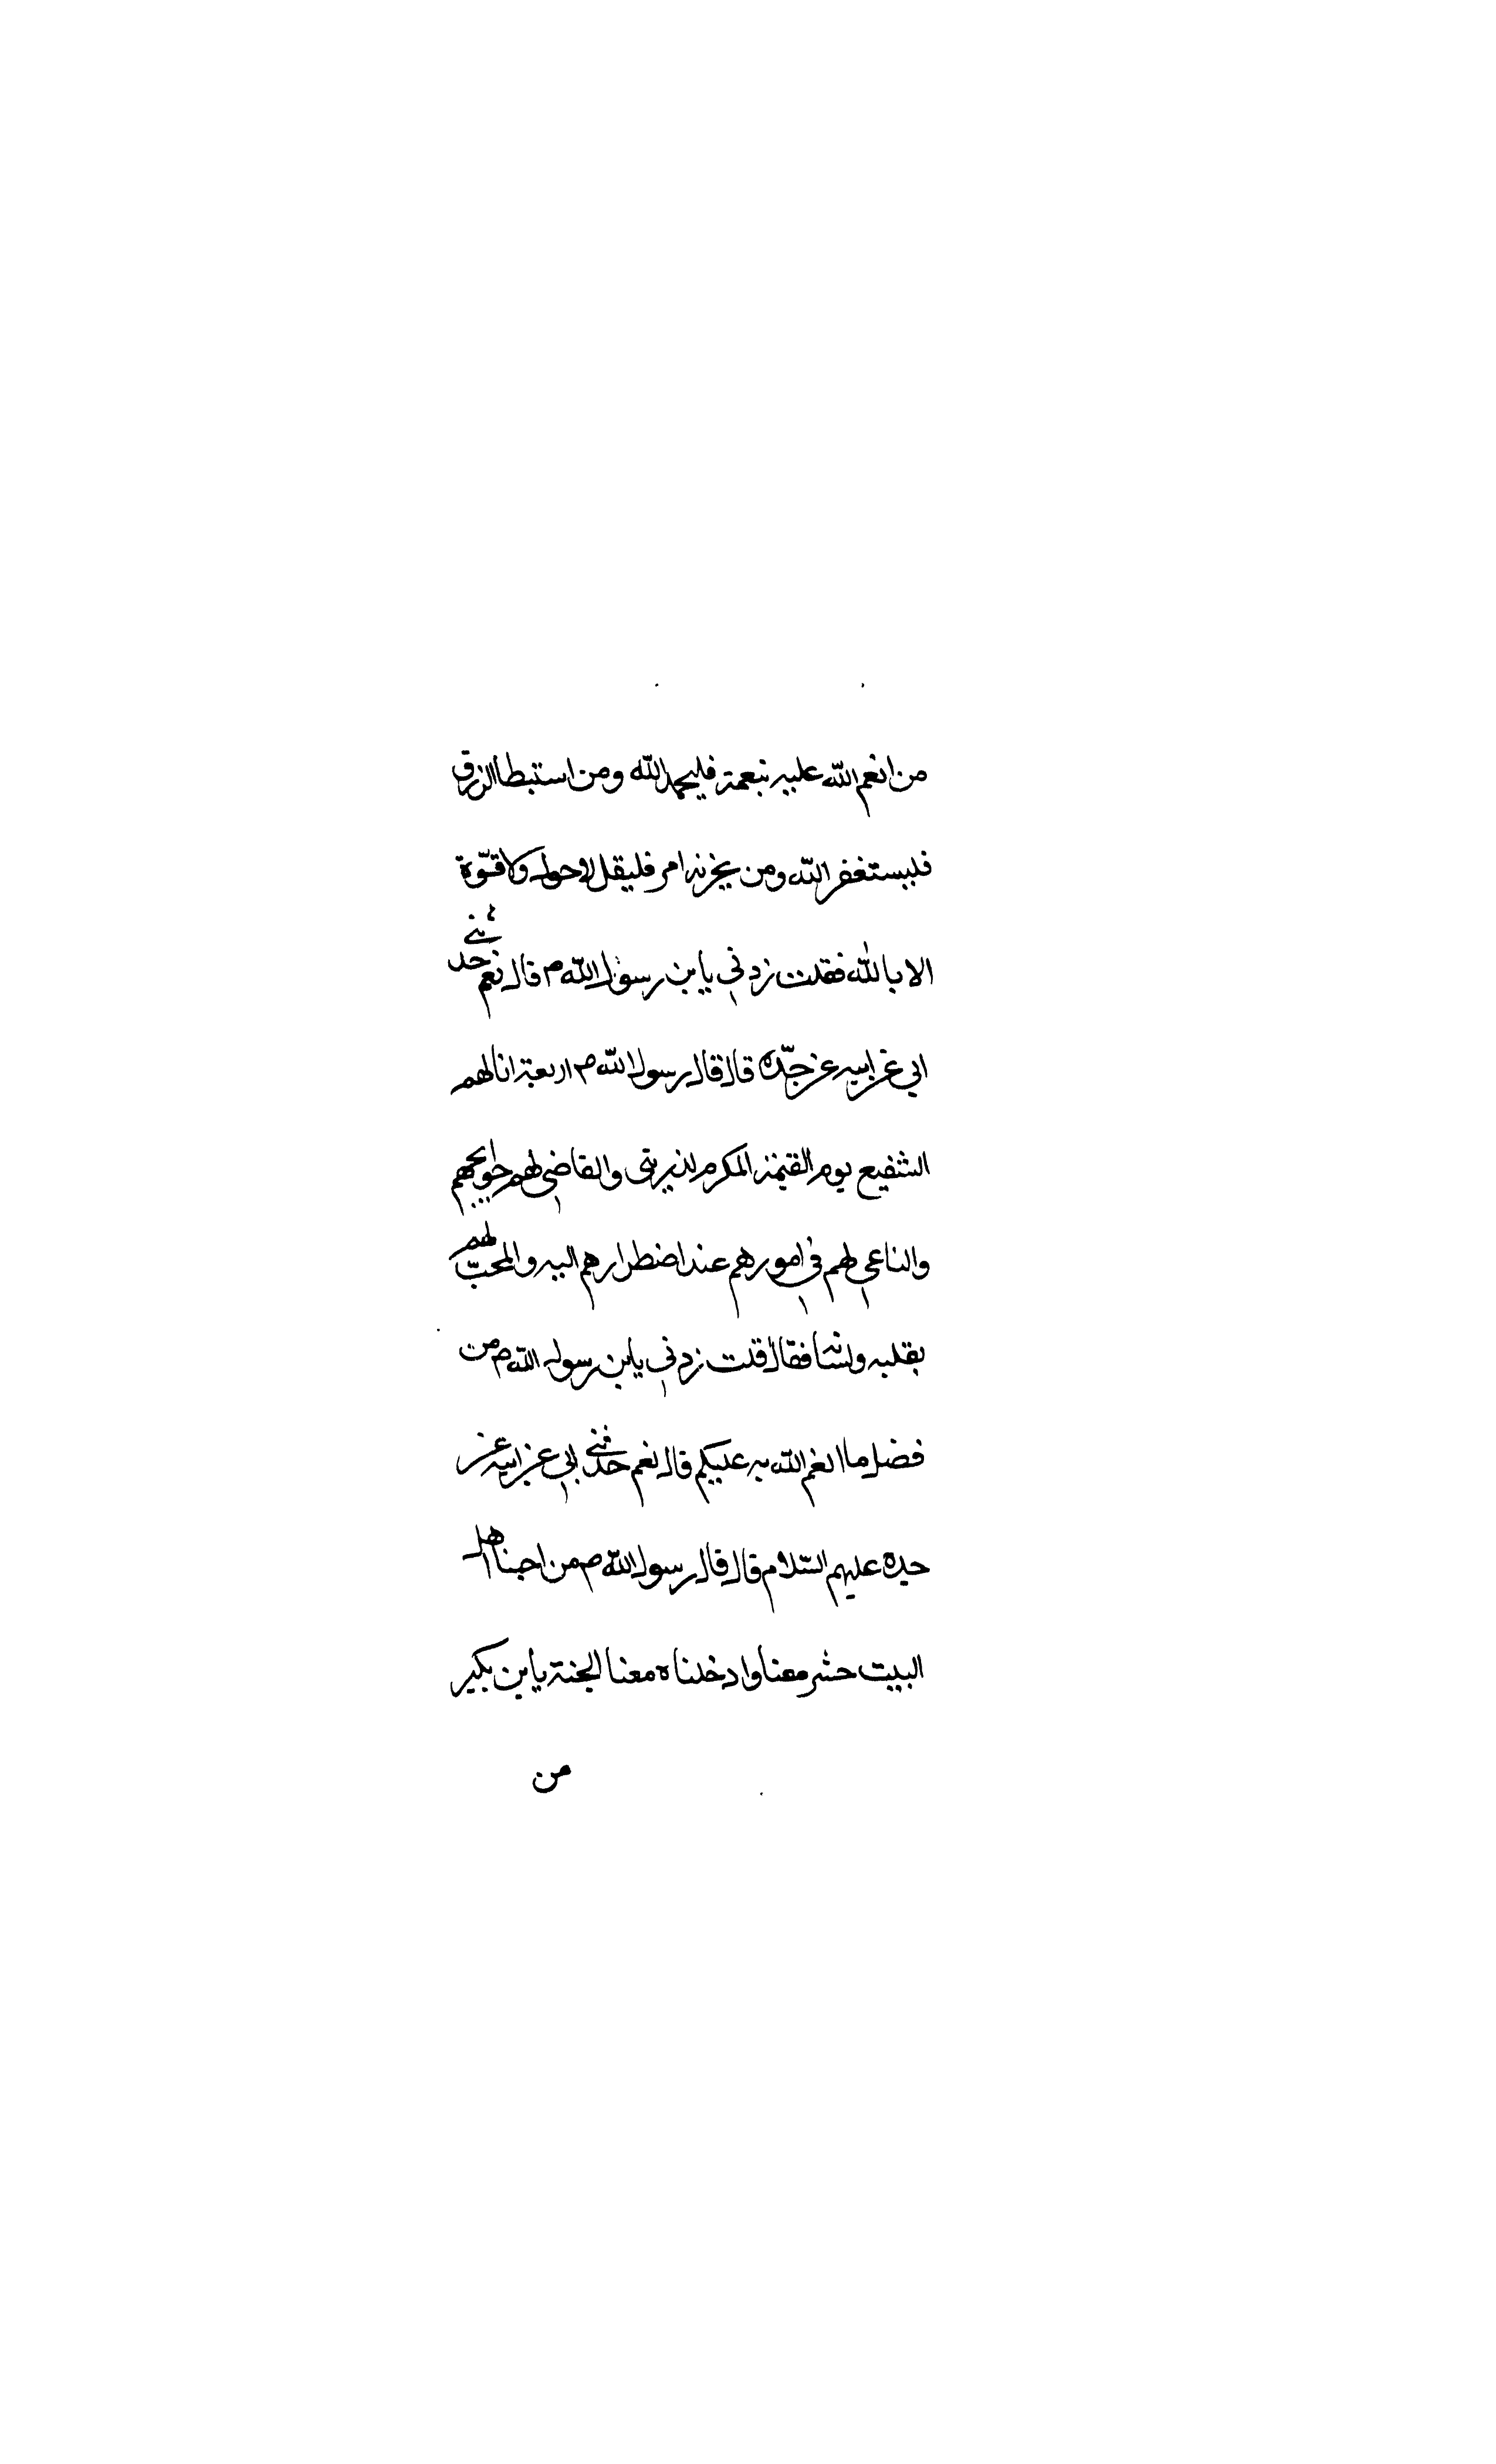 من انعم الله عليه بنعمة فليحمد الله ومن استبطا الرزق
فليستغفر الله ومن يحزنه امر فليقل لا حول ولا قوّة
الا بالله فقلت زدني يا بن رسول الله م قال نعم حدثني
ابي عن ابيه عن جدّه قال قال رسول الله م اربعة انا لهم
الشفيع يوم القيمة المكرم لذريتي والقاضي لهم حوايجهم
والناعي لهم في امورهم عند اضطرارهم اليه والمحبّ لهم
بقلبه ولسانه فقال قلت زدني يابن رسول الله م من
فضل ما انعم الله به عليكم قال نعم حدثني ابي عن ابيه عن
جده عليهم السّلام قال قال رسول الله ص من احبنا اهل
البيت حشر معنا وادخلناه معنا الجنة يا بن بكير
من